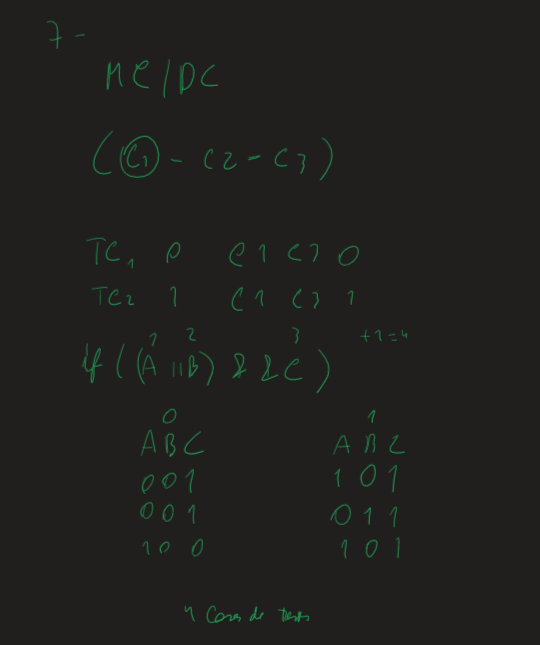 7-
MC/DC
(C1 - C2 - C3)
TC1 0 C1 C3 0
TC2 1 C1 C3 1
1 2 3 +1=4
if ((A || B) && C)
0 1
A B C A B C
0 0 1 1 0 1
0 0 1 0 1 1
1 0 0 1 0 1
4 Casos de tests